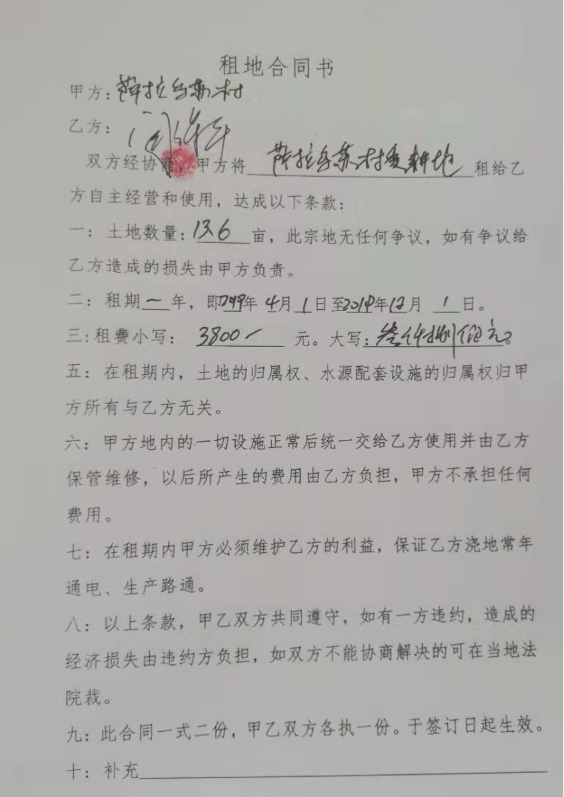 租地合同书
甲方：萨拉乌苏村
乙方：
双方经协商，甲方将 萨拉乌苏村委耕地 租给乙
方自主经营和使用，达成以下条款：
一：土地数量：136 亩，此宗地无任何争议，如有争议给
乙方造成的损失由甲方负责。
二：租期一年，即2019年4月1日至2019年12月1日。
三：租费小写：3800 元。大写：叁仟捌佰元。
五：在租期内，土地的归属权、水源配套设施的归属权归甲
方所有与乙方无关。
六：甲方地内的一切设施正常后统一交给乙方使用并由乙方
保管维修，以后所产生的费用由乙方负担，甲方不承担任何
费用。
七：在租期内甲方必须维护乙方的利益，保证乙方浇地常年
通电、生产路通。
八：以上条款，甲乙双方共同遵守，如有一方违约，造成的
经济损失由违约方负担，如双方不能协商解决的可在当地法
院裁。
九：此合同一式二份，甲乙双方各执一份。于签订日起生效。
十：补充